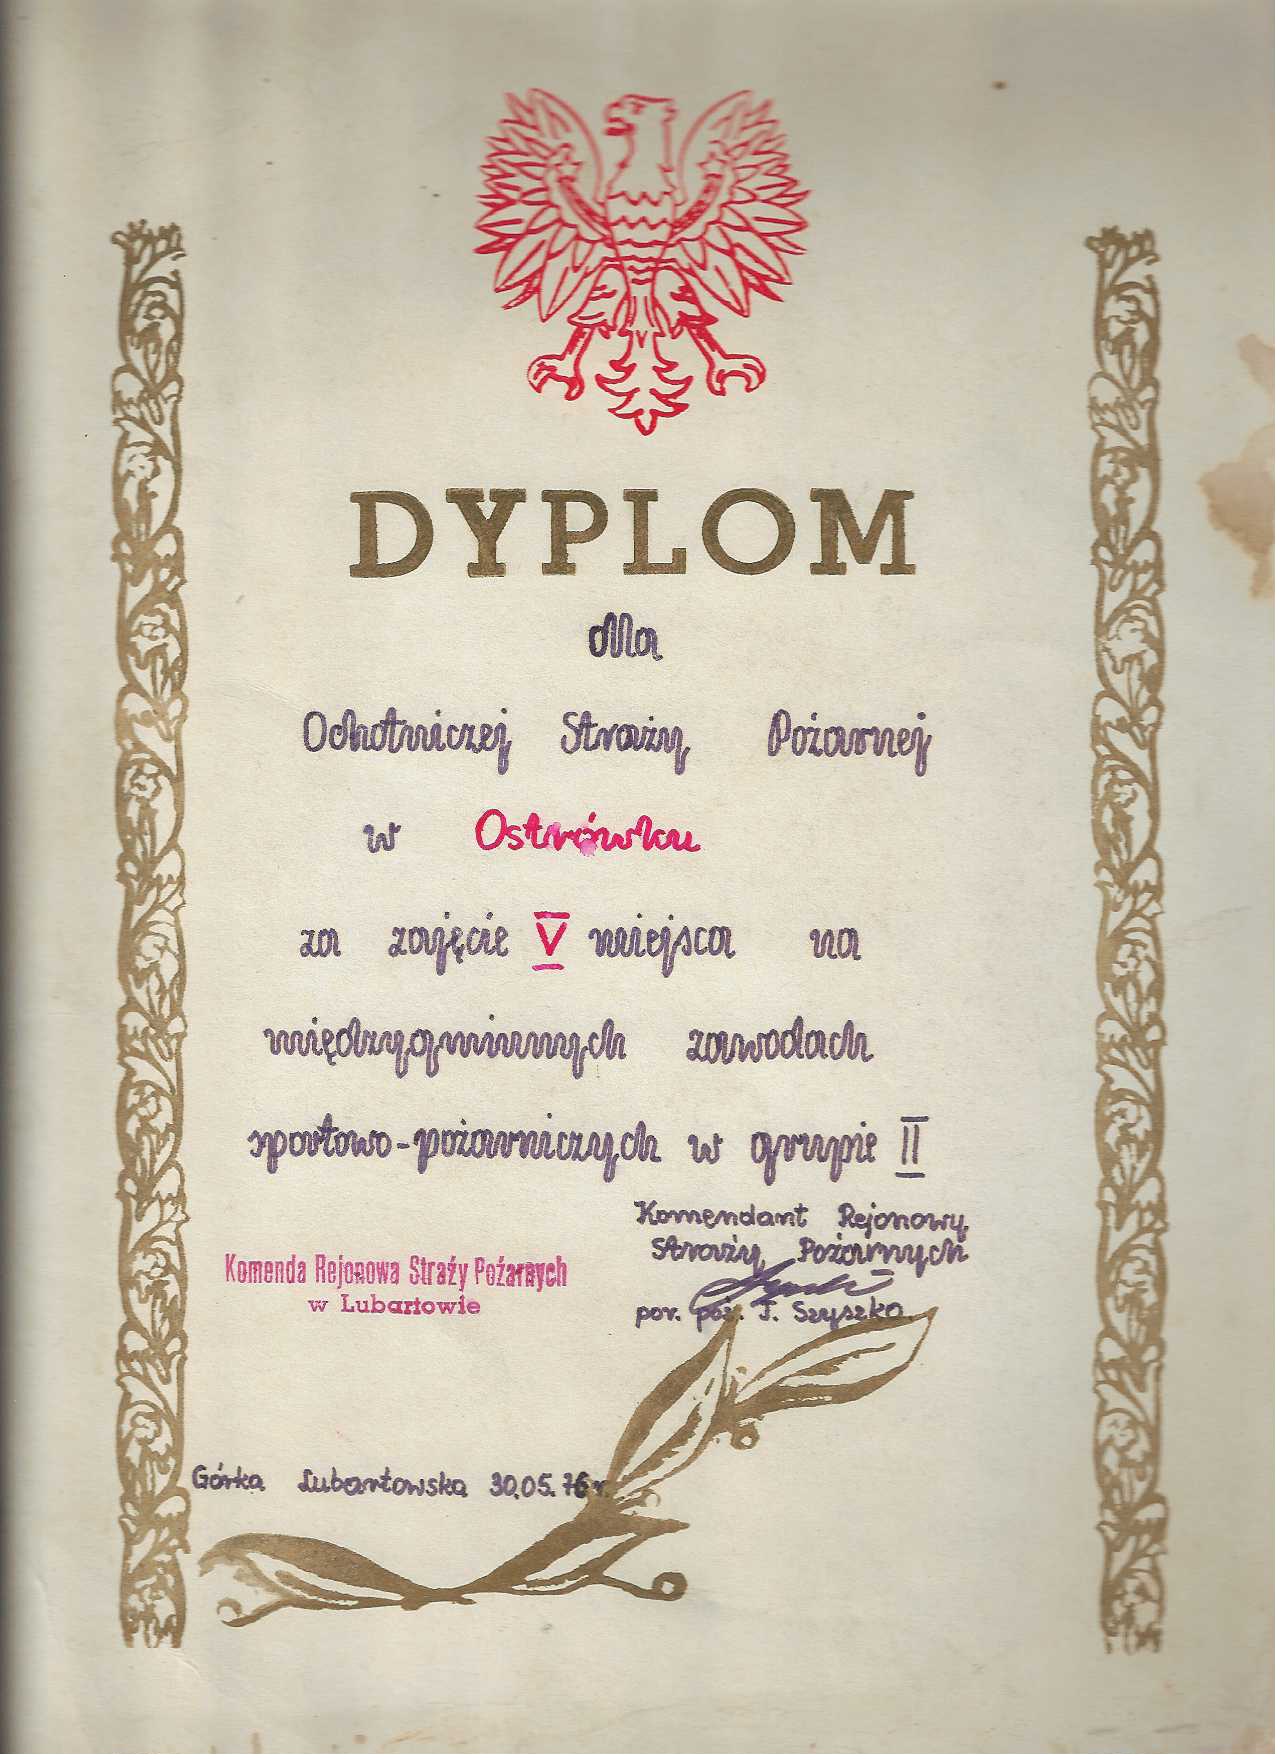 DYPLOM
dla
Ochotniczej Straży Pożarnej
w Ostrówku
za zajęcie V miejsca na
międzygminnych zawodach
sportowo-pożarniczych w grupie II
Komendant Rejonowy
Straży Pożarnych
Komenda Rejonowa Straży Pożarnych
w Lubartowie
por. poż. J. Szyszko.
Górka Lubartowska 30.05.76 r.